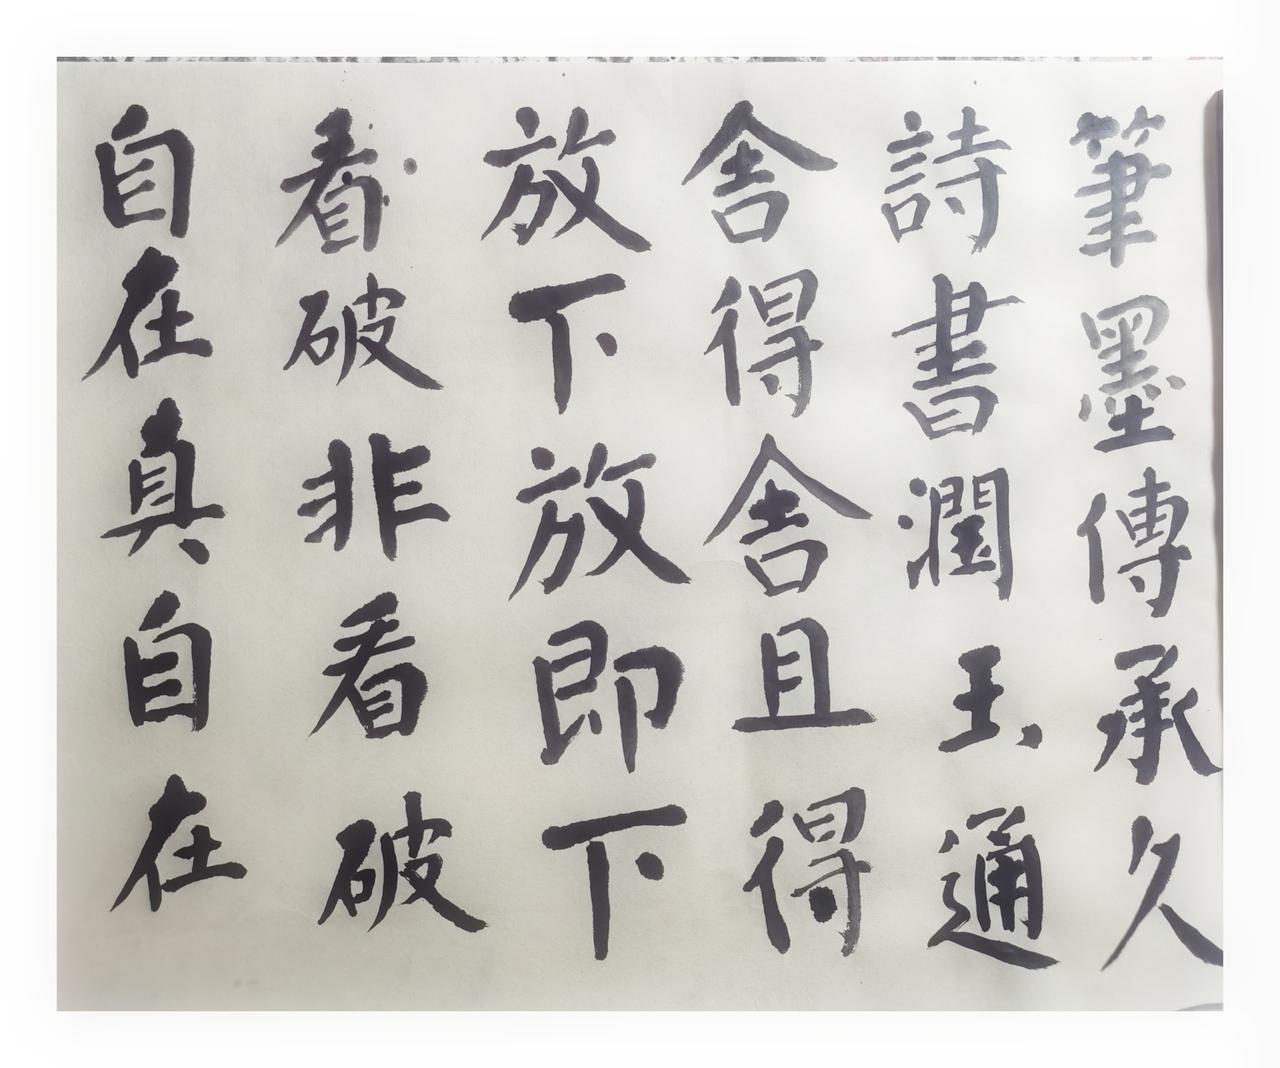 筆墨傳承久
詩書潤玉通
舍得舍且得
放下放即下
看破非看破
自在真自在